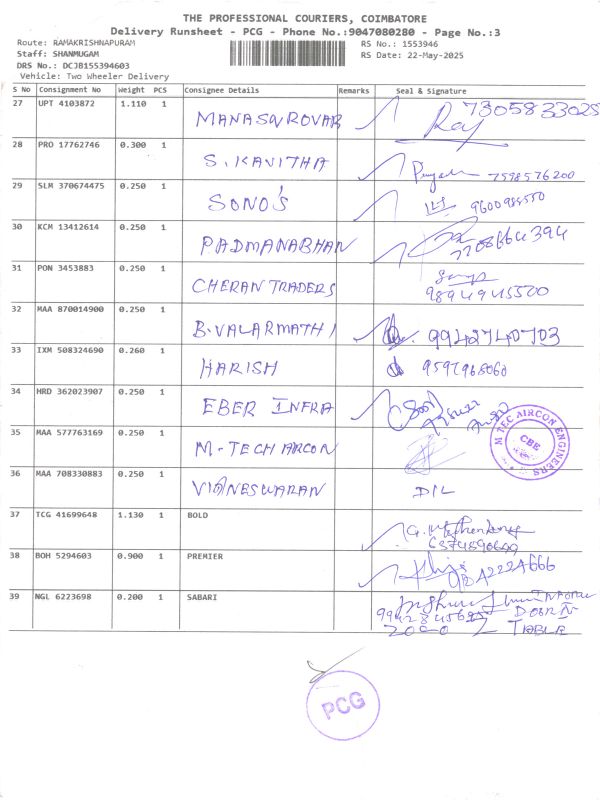 THE PROFESSIONAL COURIERS, COIMBATORE
Delivery Runsheet - PCG - Phone No.:9047080280 - Page No.:3
Route: RAMAKRISHNAPURAM
Staff: SHANMUGAM
DRS No.: DCJB155394603
Vehicle: Two Wheeler Delivery
RS No.: 1553946
RS Date: 22-May-2025
S No Consignment No Weight PCS Consignee Details Remarks Seal & Signature
27 UPT 4103872 1.110 1 MANASAROVAR 7305833025
28 PRO 17762746 0.300 1 S. KAVITHA 7598576200
29 SLM 370674475 0.250 1 SONO'S
30 KCM 13412614 0.250 1 PADMANABHAN
31 PON 3453883 0.250 1 CHERAN TRADERS 9894945520
32 MAA 870014900 0.250 1 B. VALARMATHI 9942740703
33 IXM 508324690 0.260 1 HARISH
34 HRD 362023907 0.250 1 EBER INFRA
35 MAA 577763169 0.250 1 M-TECH ARCON
M TEC AIRCON ENGINEERS
CBE
36 MAA 708330883 0.250 1 VIGNESWARAN DIL
37 TCG 41699648 1.130 1 BOLD
38 BOH 5294603 0.900 1 PREMIER
39 NGL 6223698 0.200 1 SABARI
TABLE
PCG